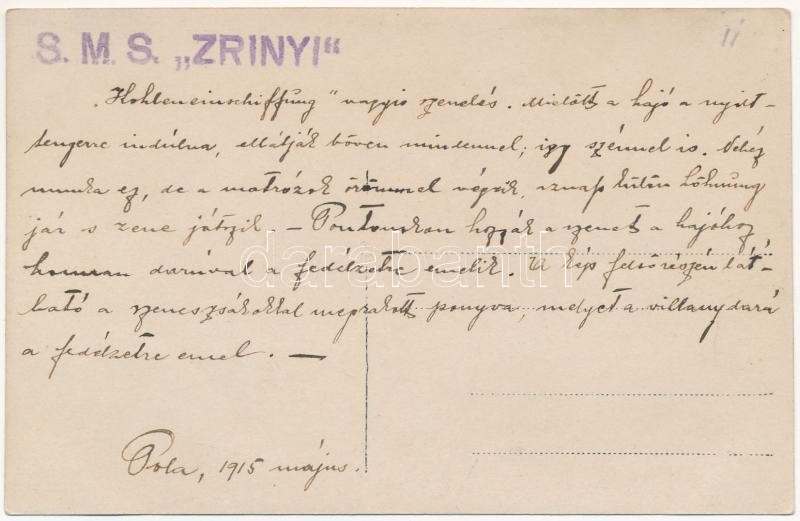 S. M. S. „ZRINYI“
„Kohleneinschiffung” vagyis szenelés. Mielőtt a hajó a nyilt-
tengerre indúlna, ellátják bőven mindennel; igy szénnel is. Nehéz
munka ez, de a matrózok örömmel végzik, aznap külön Löhnung
jár s zene játszik. – Pontonokon hozzák a szenet a hajóhoz
honnan darúval a fedélzetre emelik. A kép felsőrészén lát-
ható a szeneszsákokkal megrakott ponyva, melyet a villanydarú
a fedélzetre emel. —
Pola, 1915 május.
darabanth